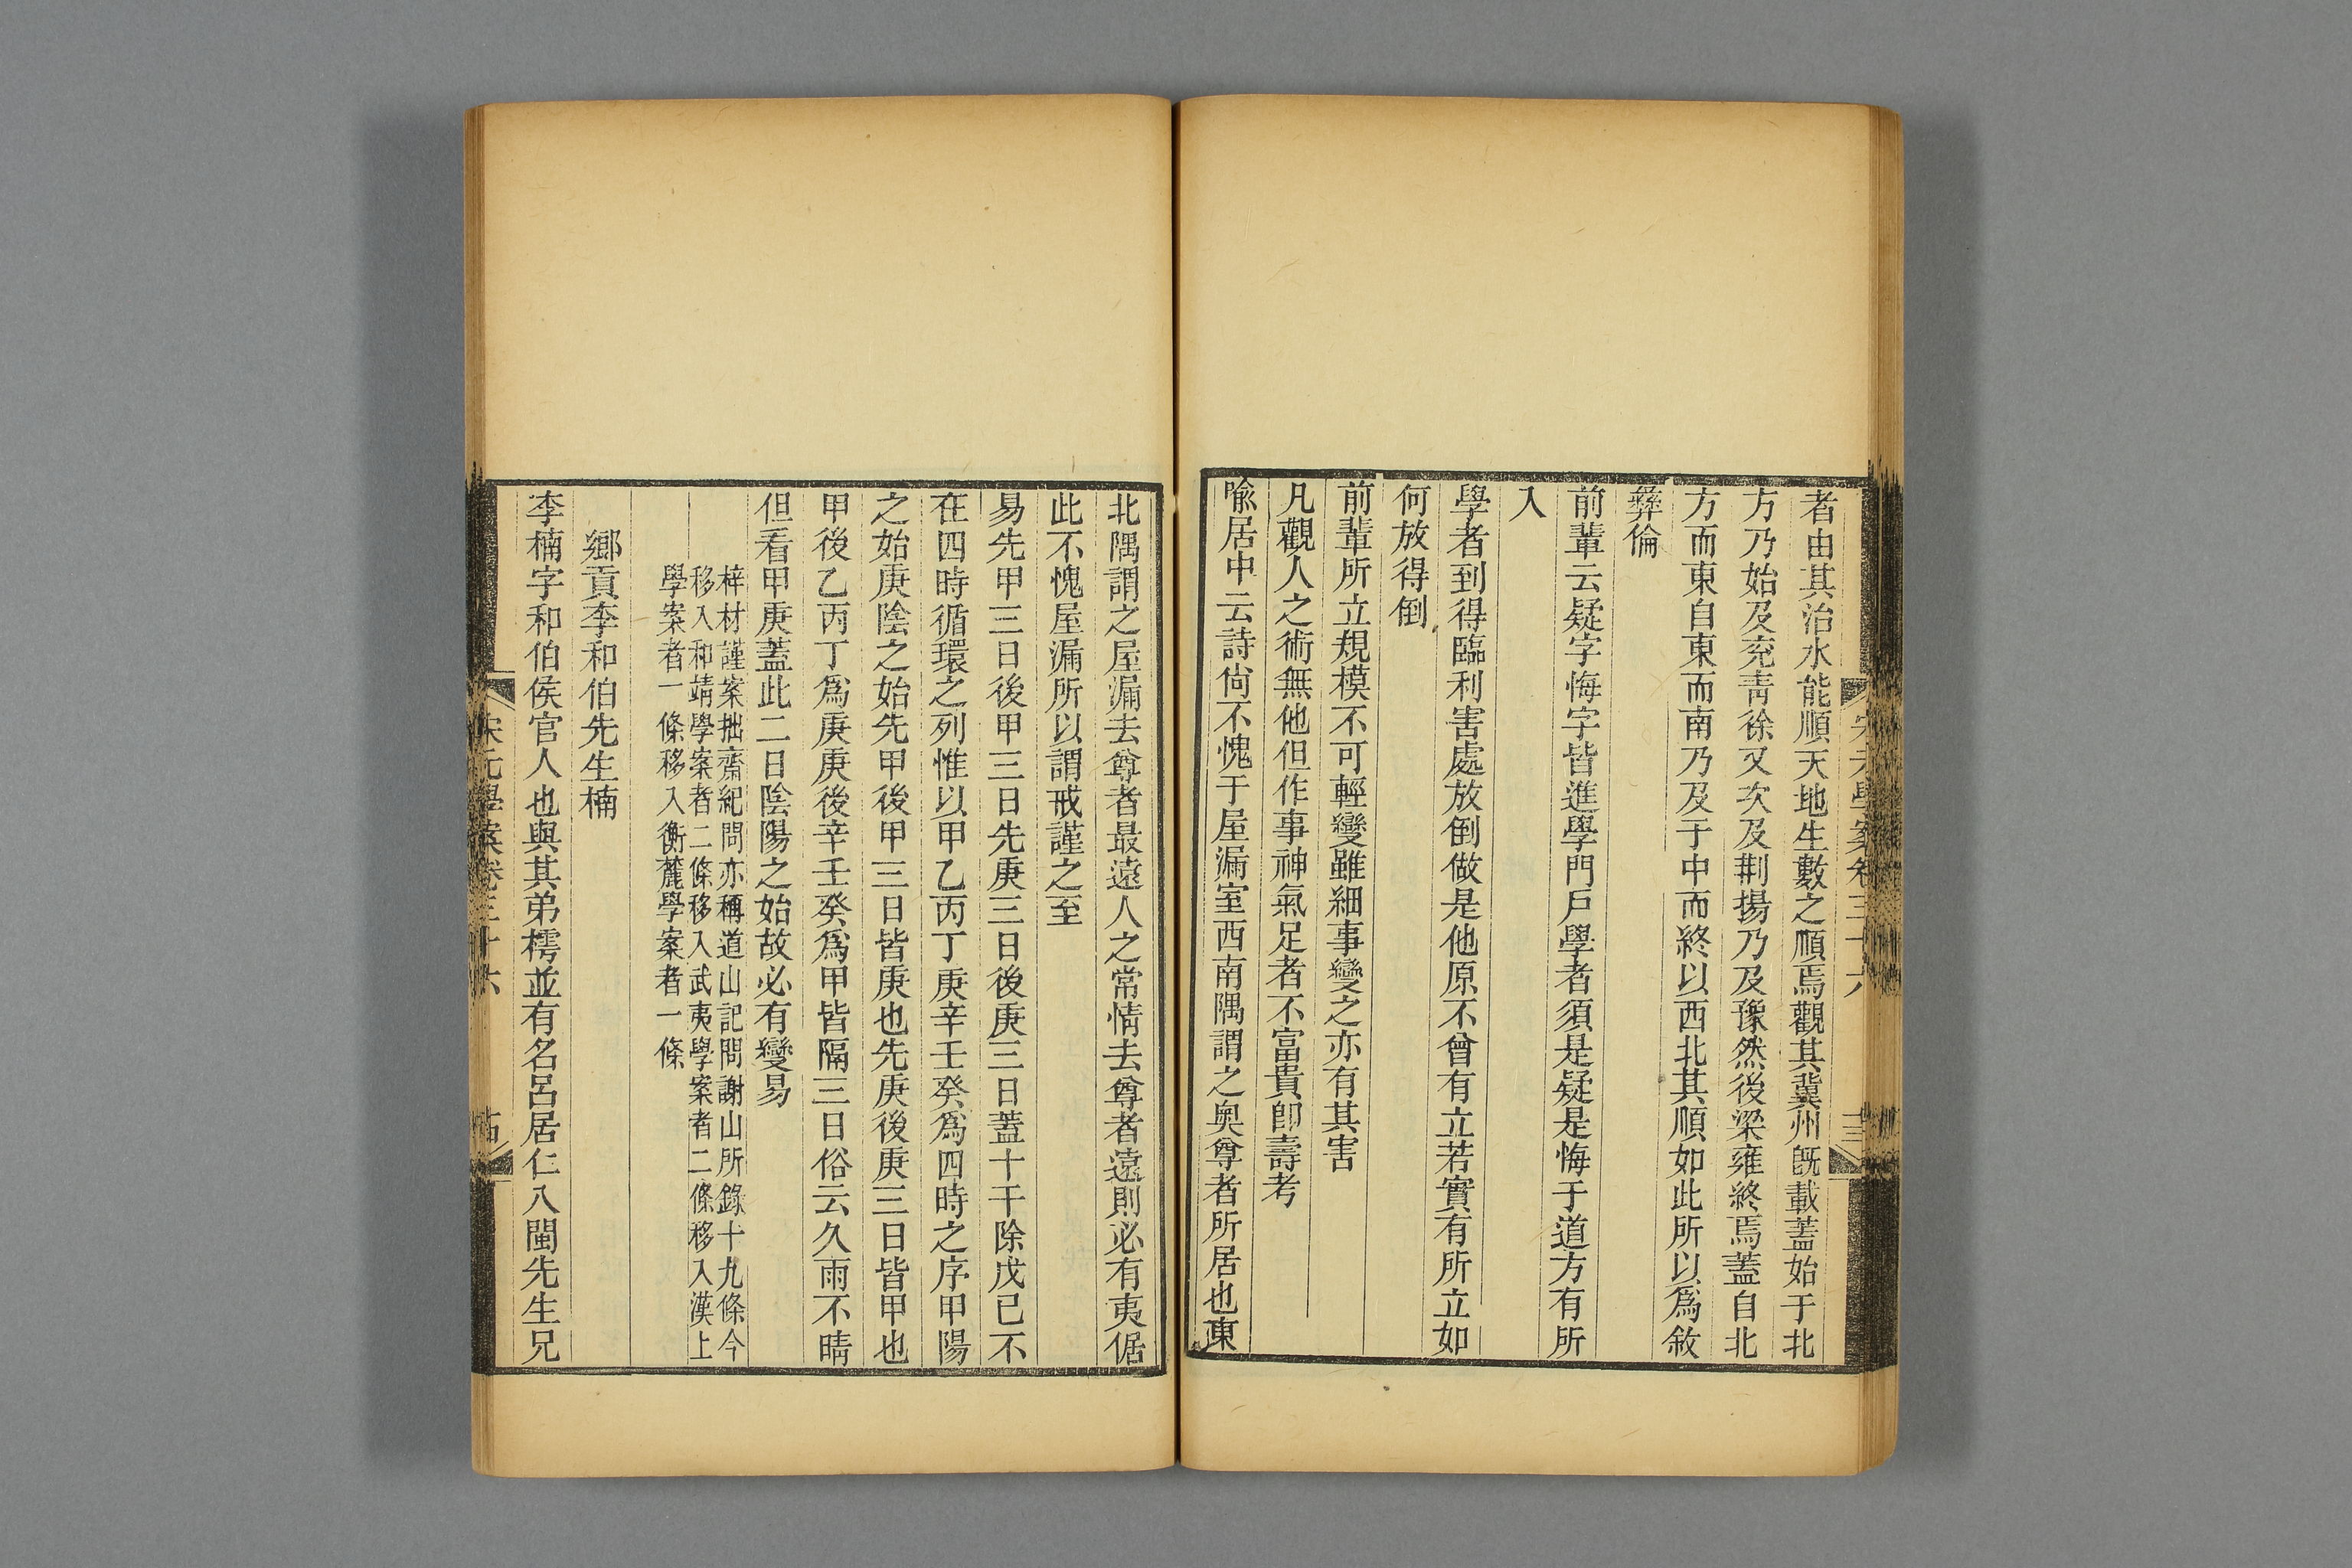 者由其治水能順天地生數之順焉觀其冀州既載蓋始于北
方乃始及兖靑徐又次及荆揚乃及豫然後梁雍終焉蓋自北
方而東自東而南乃及于中而終以西北其順如此所以爲敘
彝倫
前輩云疑字悔字皆進學門戶學者須是疑是悔于道方有所
入
學者到得臨利害處放倒做是他原不曾有立若實有所立如
何放得倒
前輩所立規模不可輕變雖細事變之亦有其害
凡觀人之術無他但作事神氣足者不富貴卽壽考
喩居中云詩尙不愧于屋漏室西南隅謂之奥尊者所居也東
北隅謂之屋漏去尊者最遠人之常情去尊者遠則必有夷倨
此不愧屋漏所以謂戒謹之至
易先甲三日後甲三日先庚三日後庚三日蓋十干除戊已不
在四時循環之列惟以甲乙丙丁庚辛壬癸爲四時之序甲陽
之始庚陰之始先甲後甲三日皆庚也先庚後庚三日皆甲也
甲後乙丙丁爲庚庚後辛壬癸爲甲皆隔三日俗云久雨不晴
但看甲庚蓋此二日陰陽之始故必有變易
梓材謹案拙齋紀問亦稱道山記問謝山所錄十九條今
移入和靖學案者二條移入武夷學案者二條移入漢上
學案者一條移入衡麓學案者一條
鄉貢李和伯先生楠
李楠字和伯侯官人也與其弟樗並有名呂居仁入閩先生兄
宋元學案卷三十六